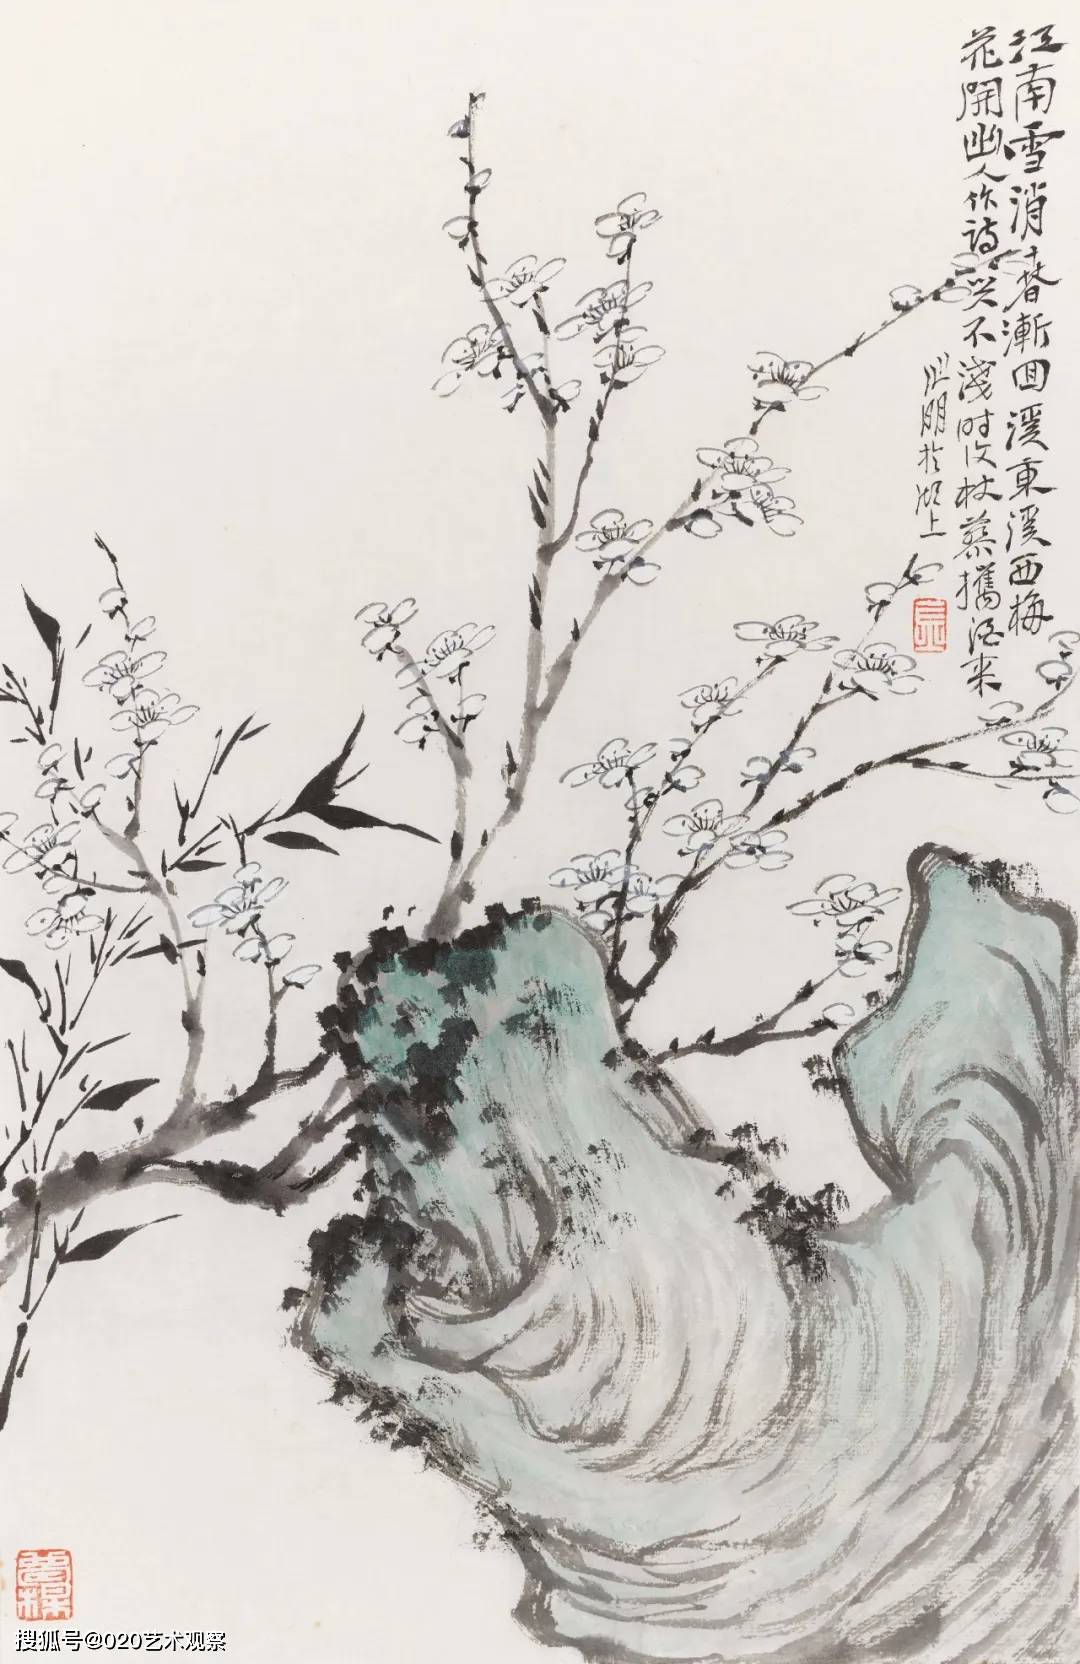 江南雪消春漸回溪東溪西梅
花開幽人作詩興不淺時收杖藜攜酒來
朋於湖上
搜狐号@020艺术观察